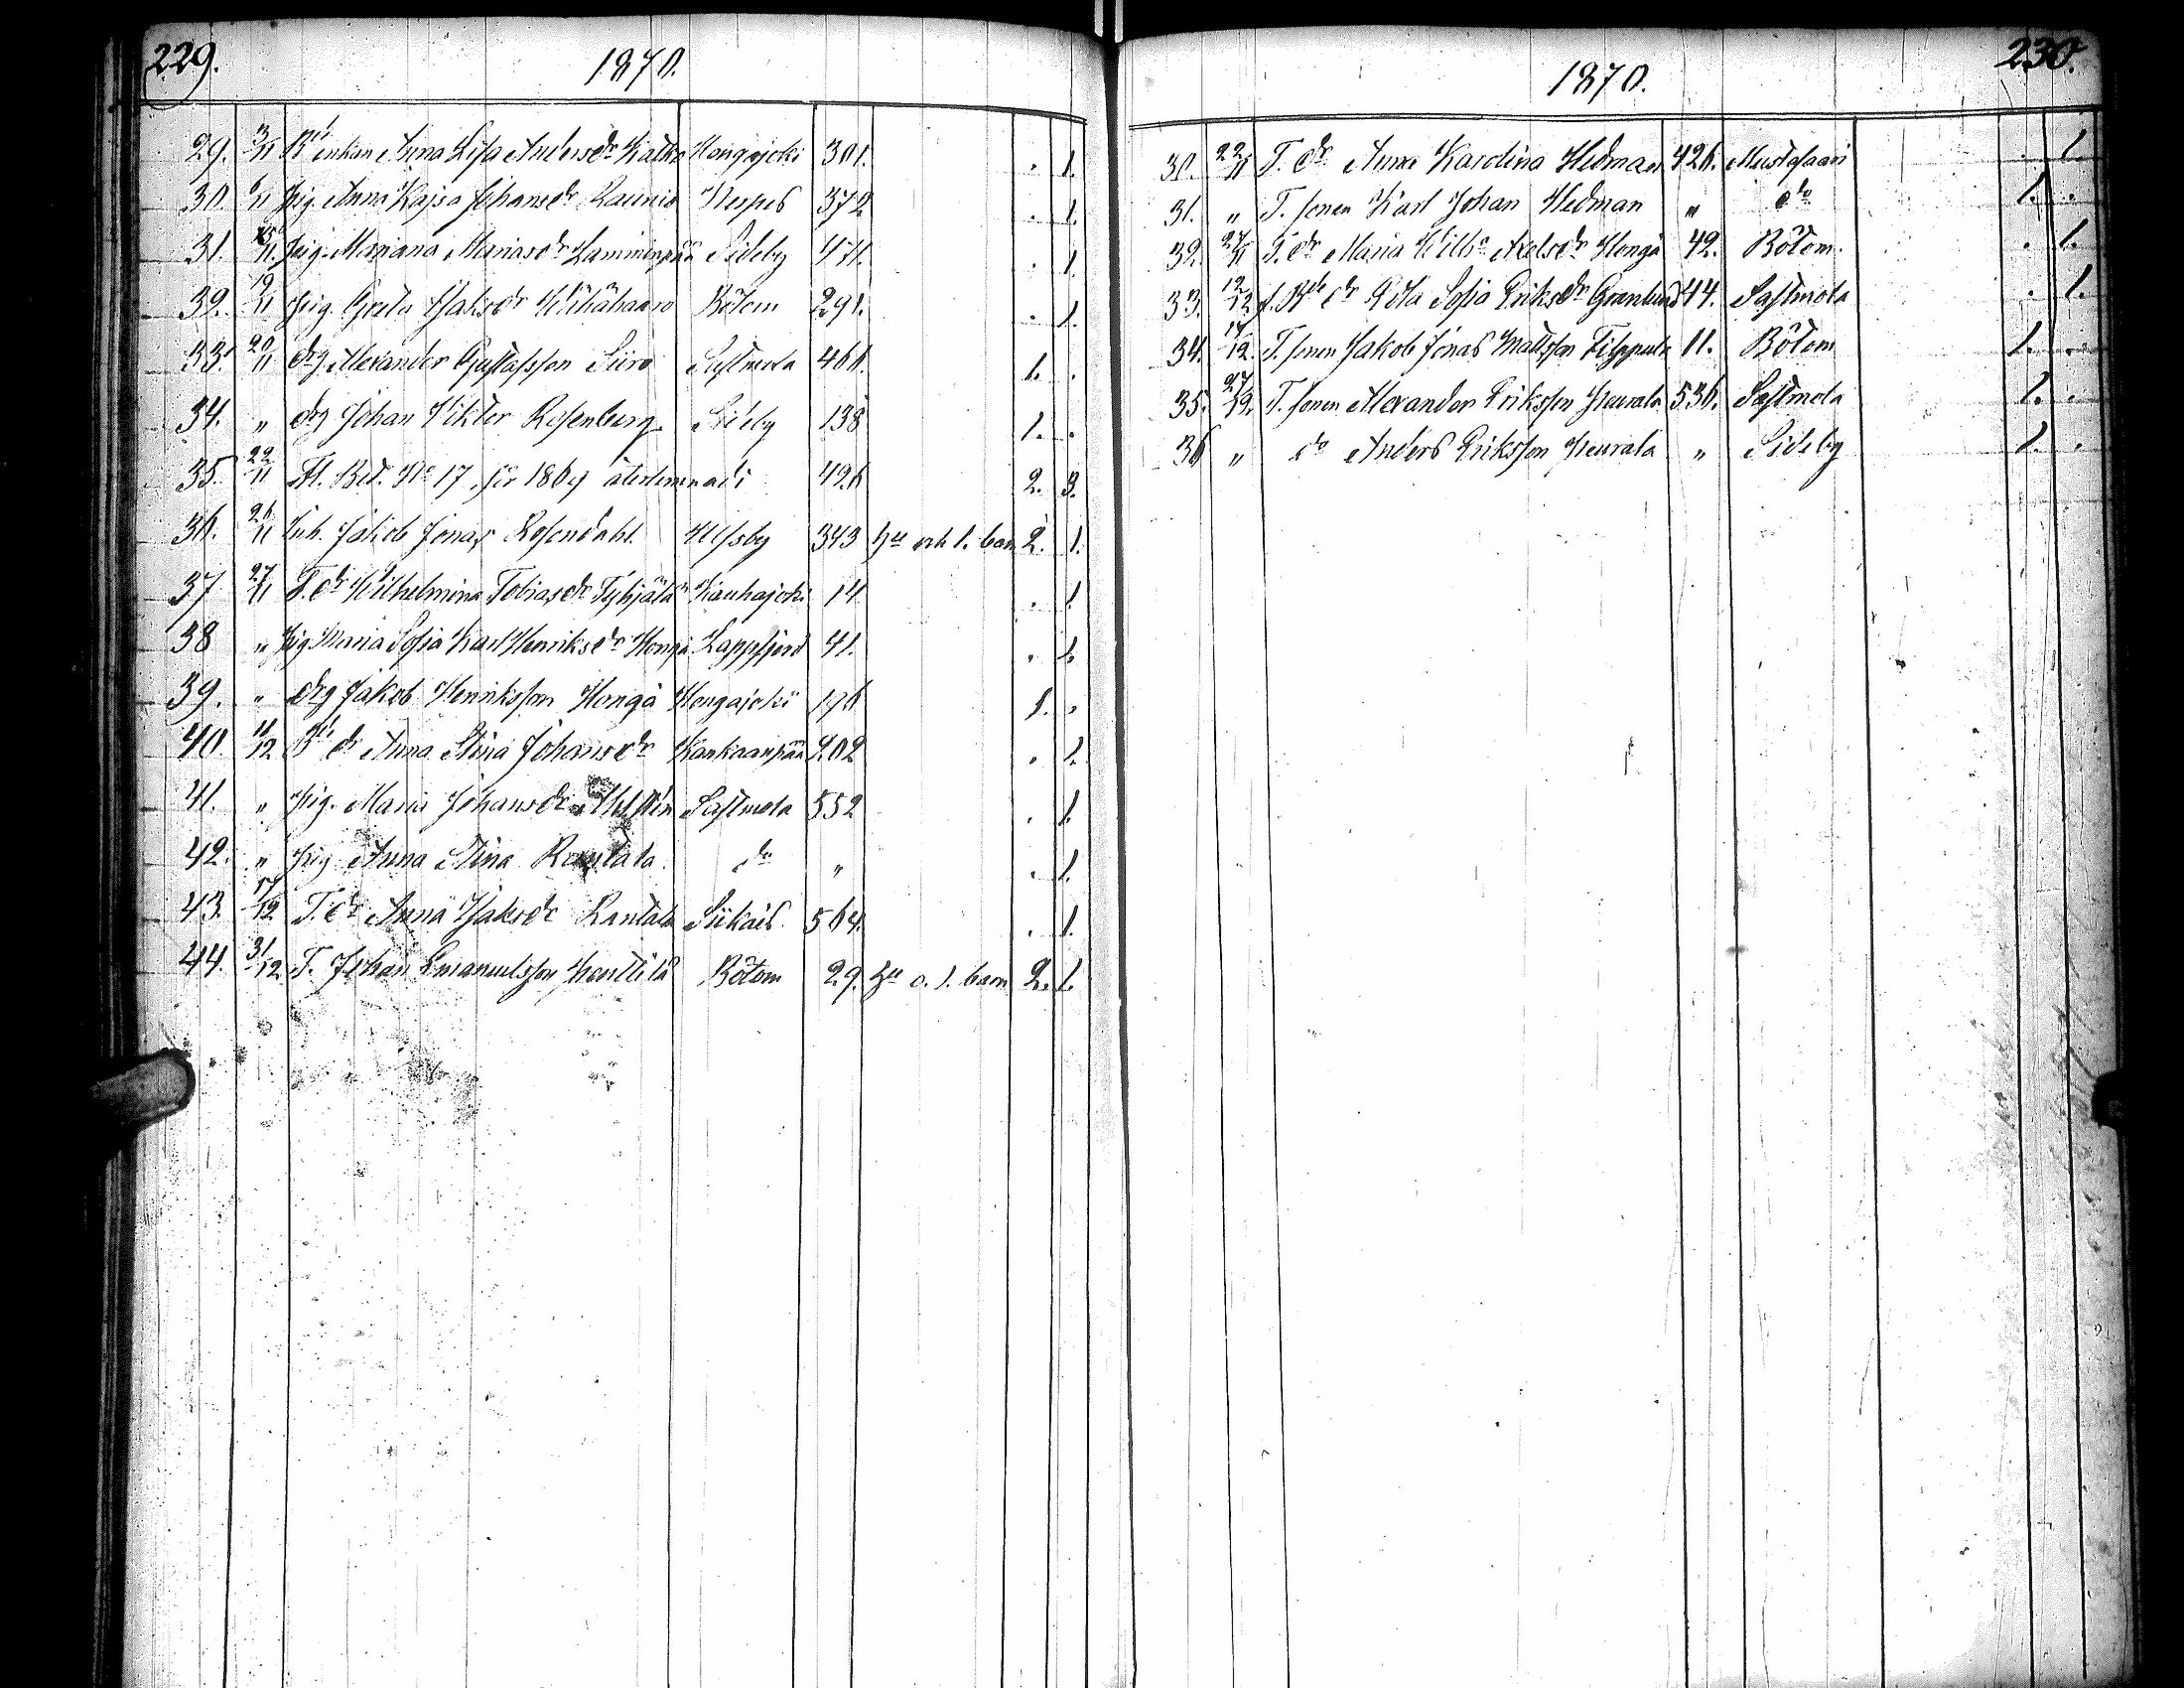 229.
1870.
29. 3/11 Bd enkan Anna Lisa Andersdr Katka Hongojoki 301. . 1.
30. 6/11 pig. Anna Kajsa Johansdr Raunio Nerpes 372 . 1.
31. 15/11. pig. Mariana Mariasdr Lamminpää Sideby 471. . 1.
32. 19/11 pig. Greta Isaksdr Bötom 291. . 1.
33. 20/11 drg Alexander Gustafsson Siiro Sastmola 461. 1. .
34. " drg Johan Viktor Rosenberg Sideby 138 1. .
35. 22/11 Fl. Bet. No 17 för 1869 426 2. 3.
36. 26/11 Inh. Jakob Jonas Rosendahl Ulfsby 343 hu och 1. barn 2. 1.
37 27/11 T. dr Wilhelmina Tobiasdr Tyhjälä Kauhajoki 14 . 1.
38 " pig Maria Sofia Karl Henriksdr Hongå Lappfjerd 41. . 1.
39. " drg Jakob Henriksson Hongå Hongajoki 176 1. .
40. 11/12 Bd dr Anna Stina Johansdr Kankaanpää 202 . 1.
41. " pig. Maria Johansdr Sastmola 552 . 1.
42. " pig Anna Stina Rantala do " . 1.
43. 17/12 T. dr Anna Isaksdr Rantala Siikais 564. . 1.
44. 31/12 T. Johan Emanuelsson Penttilä Bötom 29. hu o. 1. barn 2. 1.
230.
1870.
30. 22/11 T. dr Anna Karolina Hedman 426. Mustasaari . 1.
31. " T. sonen Karl Johan Hedman " do 1. .
32. 27/11 T. dr Maria Wilha Axelsdr Hongå 42. Bötom. . 1.
33. 12/12 f. Bd dr Sofia Eriksdr Granlund 44. Sastmola . 1.
34. 17/12. T. sonen Jakob Jonas Mattsson Filppula 11. Bötom 1. .
35. 27/12. T. sonen Alexander Eriksson Peurala 536. Sastmola 1. .
36 " do Anders Eriksson Peurala " Sideby 1. .